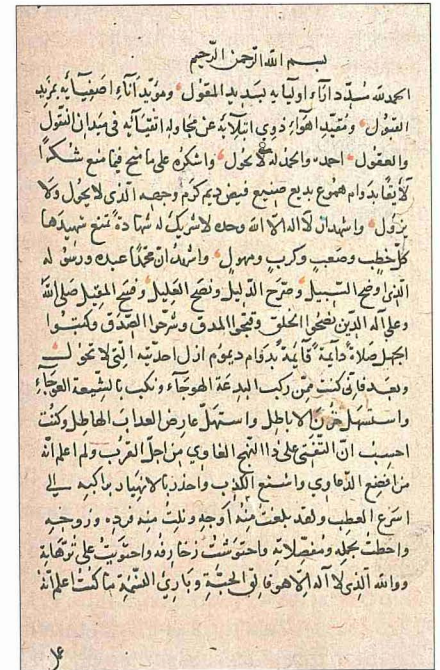 بسم الله الرحمن الرحيم
الحمد لله مسدد آراء اوليايه بسديد المقول ومؤيد آناء اصفيائه بمزيد
القبول ومقيد اهواء ذوي ابتلائه عن مجاولة اتقيائه في ميدان النقول
والعقول احمده والحمد له لا يحول واشكره على ما منح فيما صنع شكرا
لائقا بدوام هموع بديع صنيع فيض ديم كرم وجهه الذي لا يحول ولا
يزول واشهد ان لا اله الا الله وحده لا شريك له شهادة تمنع شهيدها
كل خطب وصعب وكرب ومهول واشهد ان محمدا عبده ورسوله
الذي اوضح السبيل وصرح الدليل ونصح العليل وفسح المقيل صلى الله
وعلى آله الذين نصحوا الخلق وفتحوا المدق وشرحوا الصدق وكبتوا
الجهل صلاة دايمة قايمة بدوام ديموم ازل احديته التي لا تحول
وبعد فاني كنت ممن ركب البدعة الهوجاء ونكب بالشيعة العوجاء
واستسهل حزن الاباطل واستهل عارض العذاب الهاطل وكنت
احسب ان التقفي على ذا النهج الغاوي من اجل القرب ولم اعلم انه
من افضع الدعاوي واشنع الكذب واحذر بالانهيار براكبه الى
اسرع العطب ولقد بلغت منه اوجه ونلت منه فرده وزوجه
واحطت بجمله ومفصلاته واحتوشت زخارفه واحتويت على ترهاته
ووالله الذي لا اله الا هو فالق الحبة وباري النسمة ما كنت اعلم انه